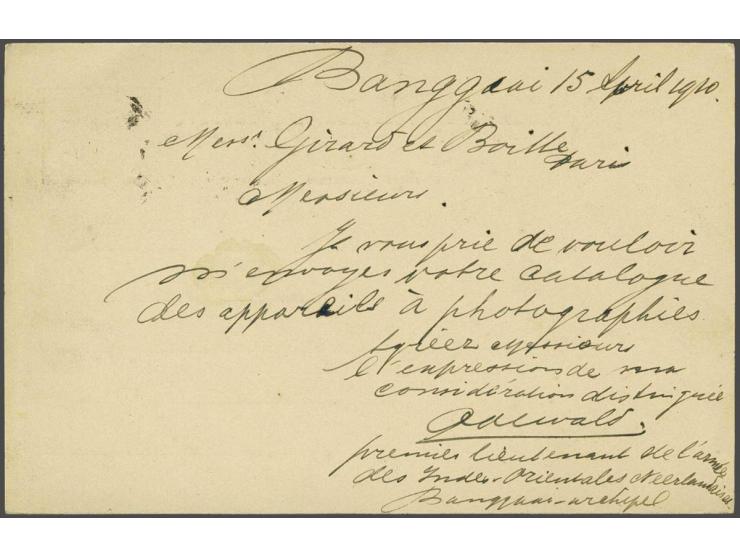 Banggaai 15 April 1910.
Mers. Girard et Boitte
Paris
Messieurs.
Je vous prie de vouloir
m'envoyer votre catalogue
des appareils à photographies
Agréez Messieurs
l'expression de ma
considération distinguée
premier lieutenant de l'armée
des Indes-Orientales Neerlandaises
Banggaai-archipel